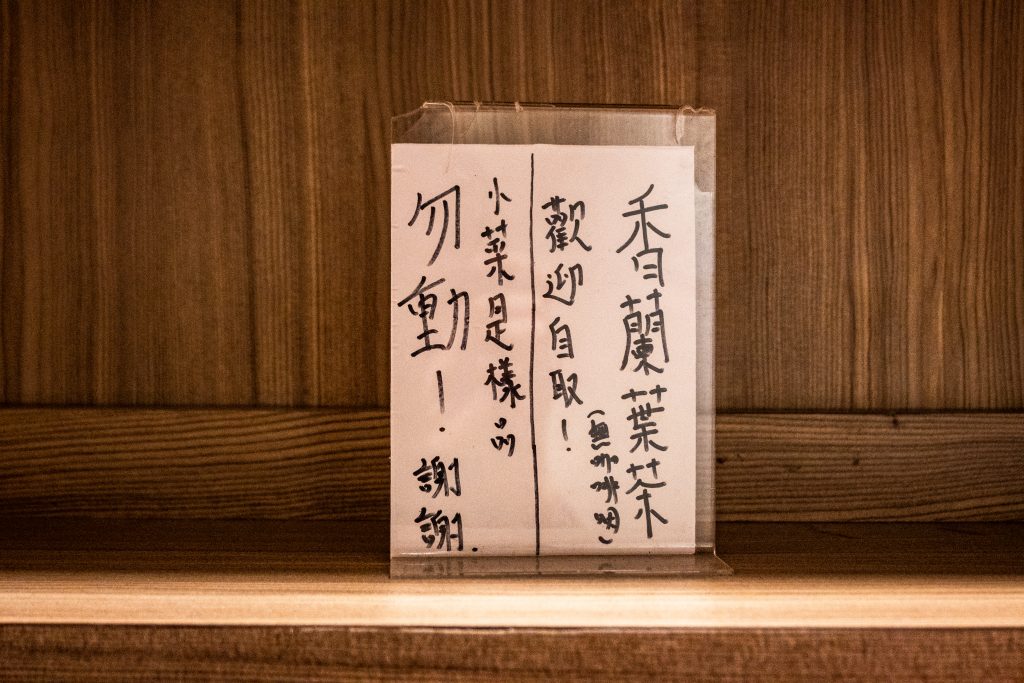 香蘭葉茶
(無咖啡因)
歡迎自取！
小菜是樣品
勿動！謝謝.